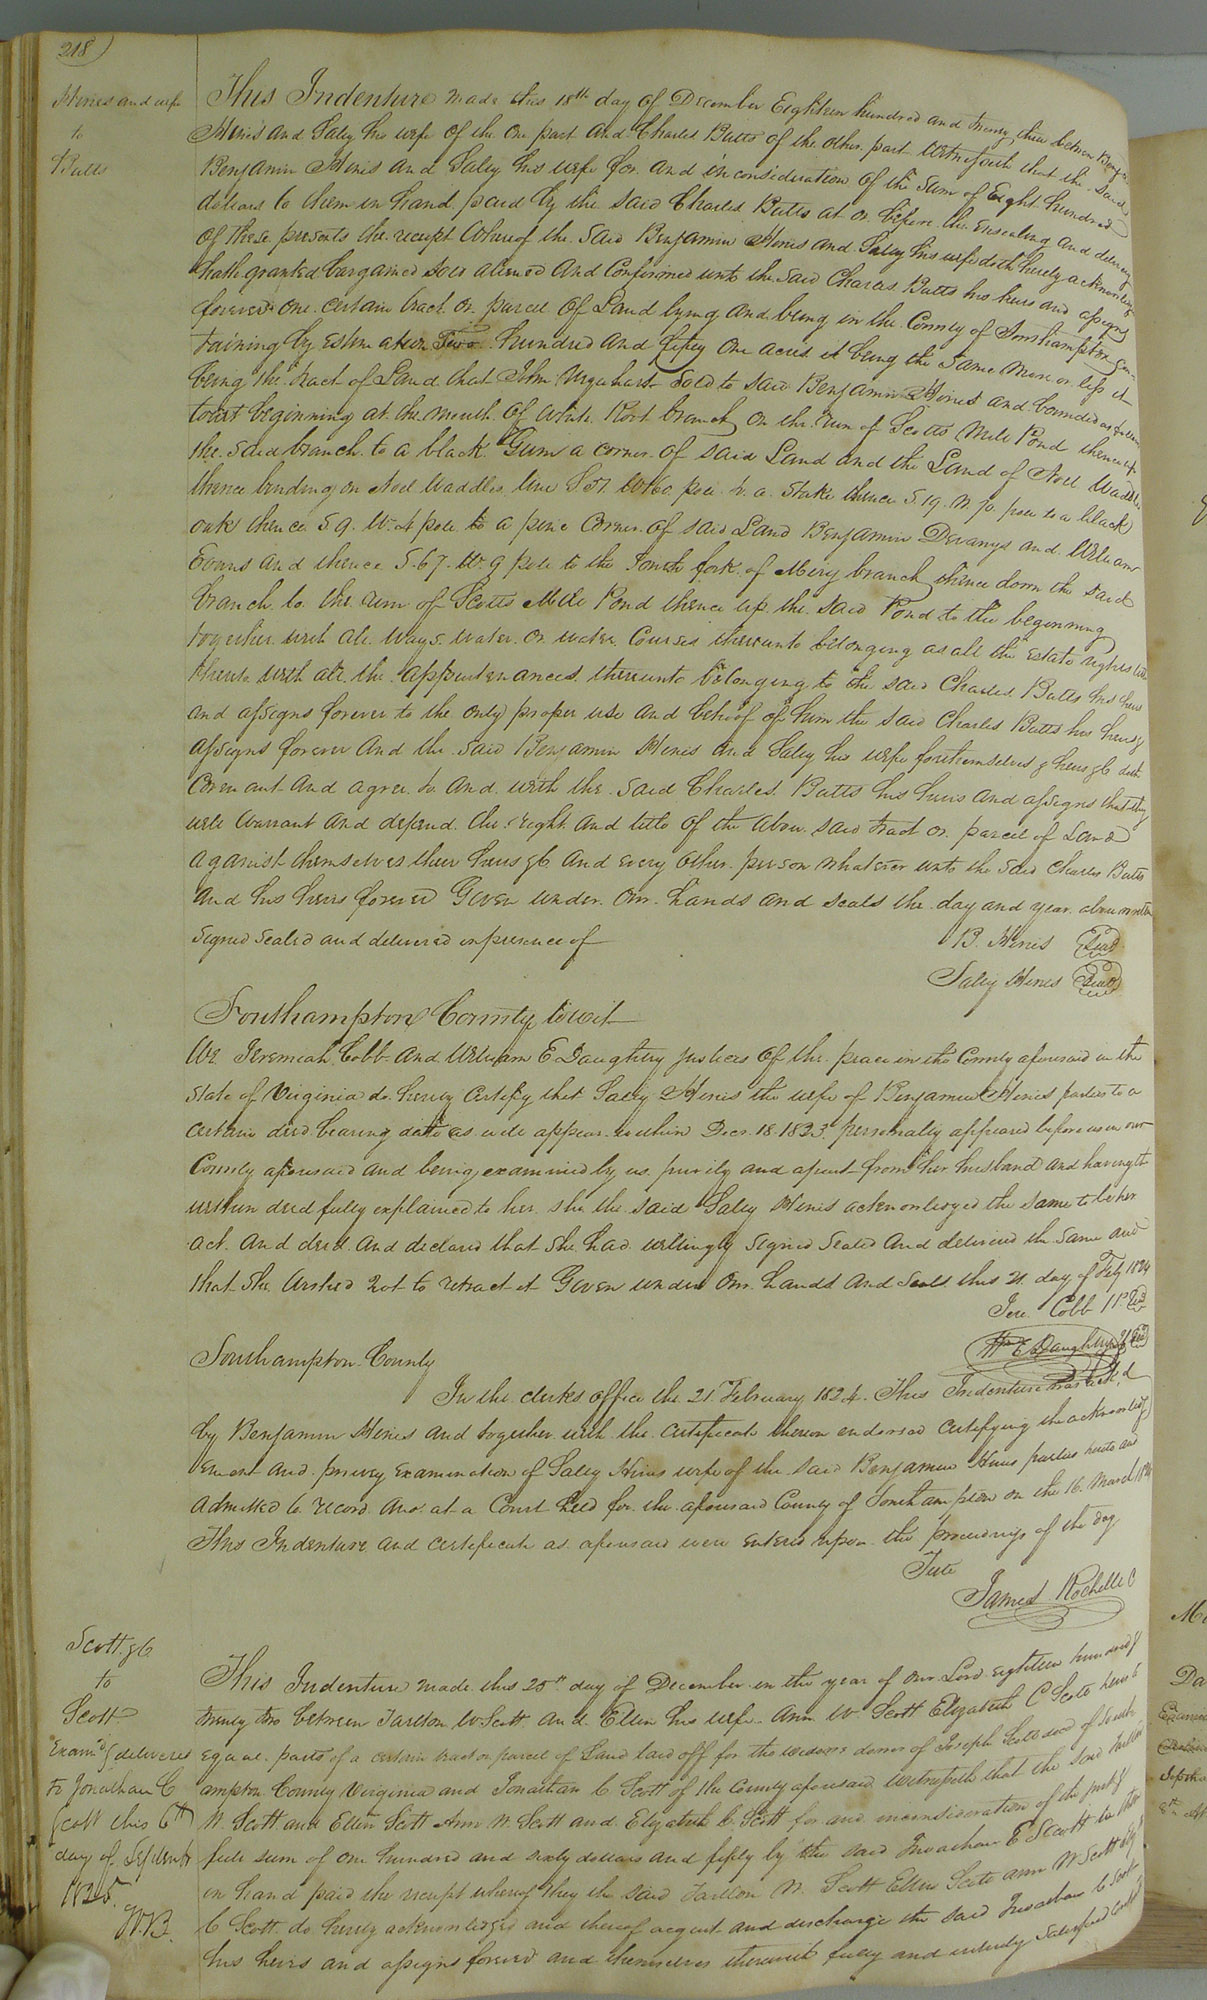 218
Hines and wife
to
Butts
This Indenture made this 18th day of December Eighteen hundred and twenty three between Benjamin
Hines and Salley his wife of the one part and Charles Butts of the other part Witnesseth that the said
Benjamin Hines and Salley his wife for and in consideration of the sum of Eight hundred
dollars to them in hand paid by the said Charles Butts at or before the ensealing and delivery
of these presents the receipt whereof the said Benjamin Hines and Salley his wife doth hereby acknowledge
hath granted bargained sold aliened and Confirmed unto the said Charles Butts his heirs and assigns
forever one certain tract or parcel of Land lying and being in the County of Southampton con-
taining by estimation Two hundred and fifty one acres it being the same more or less it
being the tract of Land that John Urquhart sold to said Benjamin Hines and bounded as follows
towit beginning at the mouth of White Root branch on the run of Scotts Mill Pond thence up
the said branch to a black Gum a corner of said Land and the Land of Noel Waddles
thence binding on Noel Waddles line S 51 W 160 pole to a stake thence S. 19. W. 70. pole to a black
oak thence S 9. W. 4 pole to a pine Corner of said Land Benjamin Devanys and William
Evans and thence S. 67. W. 9 pole to the South fork of Miery branch thence down the said
branch to the run of Scotts Mill Pond thence up the said Pond to the beginning
together with all ways water or water Courses thereunto belonging as all the estate rights title
thereto with all the appurtenances thereunto belonging to the said Charles Butts his heirs
and assigns forever to the only proper use and behoof of him the said Charles Butts his heirs &
assigns forever And the said Benjamin Hines and Salley his wife for themselves & heirs &c doth
Covenant and agree to and with the said Charles Butts his heirs and assigns that they
will Warrant and defend the right and title of the above said tract or parcel of Land
against themselves their heirs &c and every other person whatever unto the said Charles Butts
and his heirs forever Given under our hands and seals the day and year above written
Signed Sealed and delivered in presence of B. Hines Seal
Salley Hines Seal
Southampton County towit
We Jeremiah Cobb and William E Daughtry justices of the peace in the County aforesaid in the
State of Virginia do hereby certify that Salley Hines the wife of Benjamin Hines parties to a
certain deed bearing date as will appear within Decr. 18. 1823 personally appeared before us in our
County aforesaid and being examined by us privily and apart from her husband and having the
within deed fully explained to her she the said Salley Hines acknowledged the same to be her
act and deed and declared that she had willingly signed sealed and delivered the same and
that she wished not to retract it Given under our hands and seals this 21 day of Feby 1824
Jere. Cobb J P Seal
Wm E Daughtry Seal
Southampton County
In the clerks office the 21 February 1824. This Indenture was ack'd
by Benjamin Hines and together with the certificate thereon endorsed certifying the acknowledg
ement and privy examination of Salley Hines wife of the said Benjamin Hines parties hereto and
admitted to record And at a Court held for the aforesaid County of Southampton on the 16. March 1824
This Indenture and certificate as aforesaid were entered upon the proceedings of the day
Teste
James Rochelle C
Scott &c
to
Scott
Examd & delivered
to Jonathan C
Scott this 6th
day of Septembr
1825.
W.B.
This Indenture made this 25th day of December in the year of our Lord eighteen hundred &
twenty two between Tarlton W Scott and Ellen his wife Ann W Scott Elizabeth C Scott heirs to
equal parts of a certain tract or parcel of Land laid off for the widows dower of Joseph Scott decd of South
ampton County Virginia and Jonathan C Scott of the County aforesaid witnesseth that the said Tarlton
W. Scott and Ellen Scott Ann W. Scott and Elizabeth C. Scott for and in consideration of the just &
full sum of one hundred and sixty dollars and fifty by the said Jonathan C Scott to them
in hand paid the receipt whereof they the said Tarlton W. Scott Ellen Scott Ann W Scott Elizh
C Scott do hereby acknowledge and thereof acquit and discharge the said Jonathan C Scott
his heirs and assigns forever and themselves therewith fully and entirely satisfied